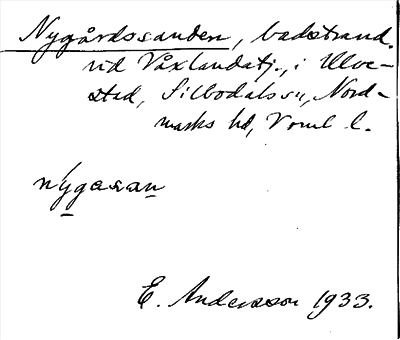 Nygårdssanden, badstrand.
vid Våxlandatj., i Ulve-
stad, Silbodals sn, Nord-
marks hd, Vrml l.
nýgasan
E. Andersson 1933.